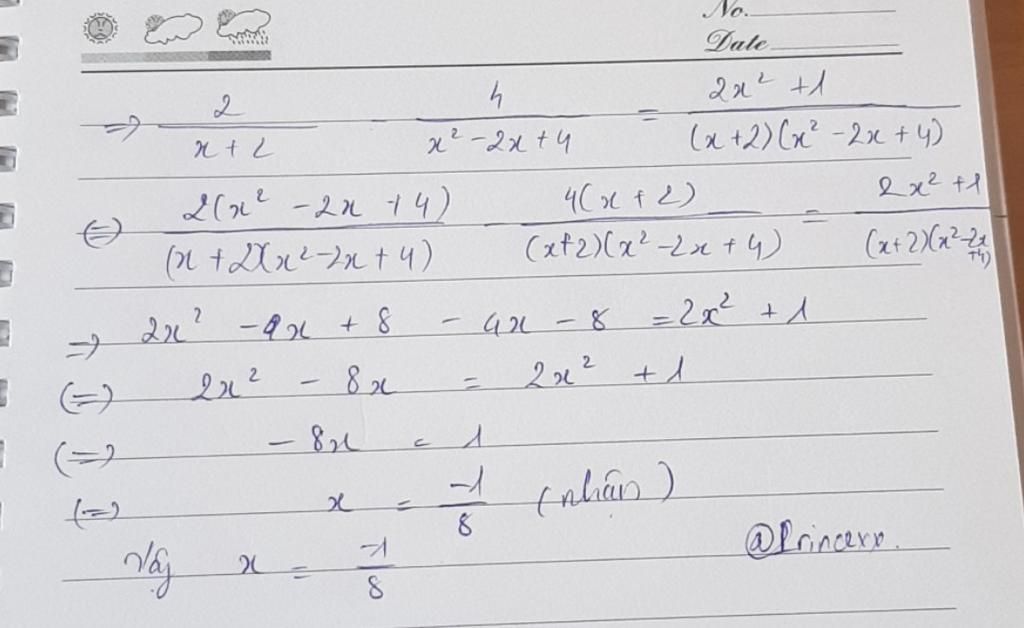 No.
Date
⇒ 2/(x+2) - 4/(x² - 2x + 4) = (2x² + 1)/((x+2)(x² - 2x + 4))
⇔ 2(x² - 2x + 4)/((x+2)(x² - 2x + 4)) - 4(x + 2)/((x+2)(x² - 2x + 4)) = (2x² + 1)/((x+2)(x² - 2x + 4))
⇒ 2x² - 4x + 8 - 4x - 8 = 2x² + 1
(=) 2x² - 8x = 2x² + 1
(=) - 8x = 1
(=) x = -1/8 (nhận)
Vậy x = -1/8
@Princexx.